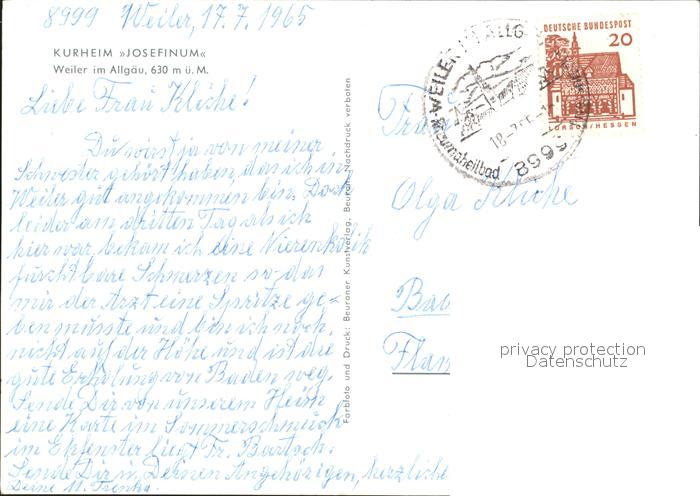 8999 Weiler, 17.7.1965
KURHEIM »JOSEFINUM«
Weiler im Allgäu, 630 m ü. M.
Liebe Frau Kliche!
Du wirst ja von meiner
Schwester gehört haben, das ich in
Weiler gut angekommen bin. Doch
leider am dritten Tag als ich
hier war bekam ich eine Nierenkolik
furchtbare Schmerzen so das
mir der Arzt eine Spritze ge-
ben musste und bin ich noch
nicht auf der Höhe und ist die
gute Erholung von Baden weg.
Sende Dir von unserem Heim
eine Karte im Sommerschmuck
im Ekfenster liegt Fr. Bartsch.
Sende Dir u. Deinen Angehörigen, herzliche
Deine M.
Farbfoto und Druck: Beuroner Kunstverlag, Beuron. Nachdruck verboten
DEUTSCHE BUNDESPOST
20
LORSCH/HESSEN
WEILER IM ALLG
8999
Olga Kliche
Bad
Flam
privacy protection
Datenschutz